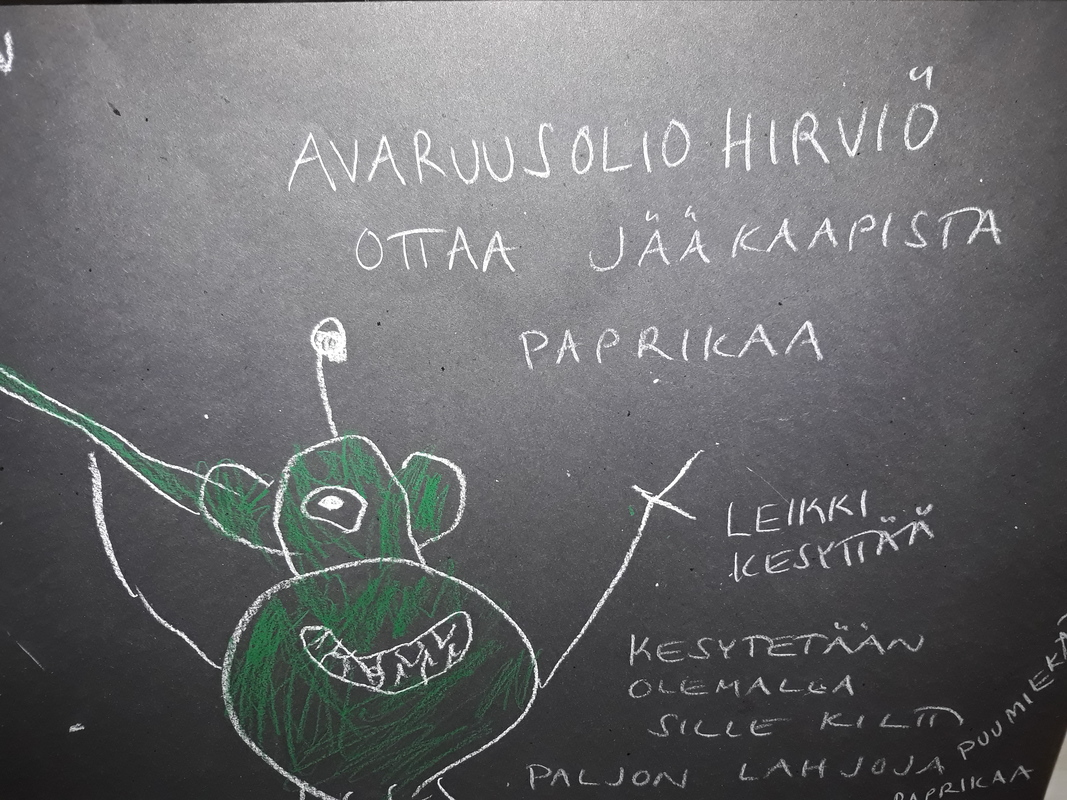 AVARUUSOLIO HIRVIÖ
OTTAA JÄÄKAAPISTA
PAPRIKAA
LEIKKI
KESYTTÄÄ
KESYTETÄÄN
OLEMALLA
SILLE KILTTI
PALJON LAHJOJA
PAPRIKAA